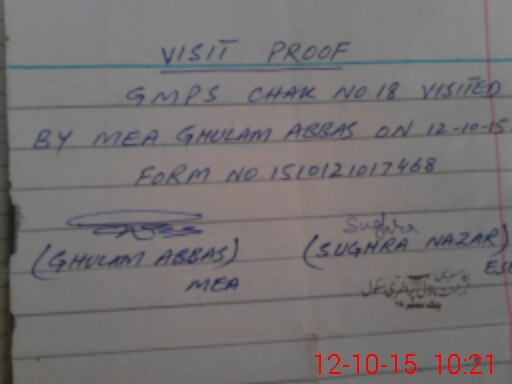 VISIT PROOF
GMPS CHAK NO.18 VISITED
BY MEA GHULAM ABBAS ON 12-10-15
FORM NO 1510121017468
Sughra
(GHULAM ABBAS) (SUGHRA NAZAR)
MEA ESE
چک نمبر
12-10-15 10:21